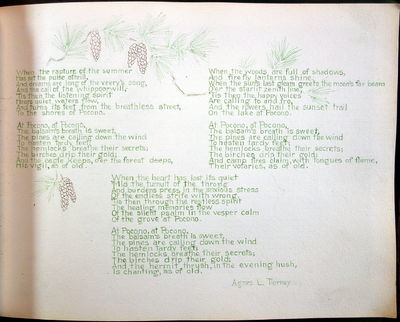 When the rapture of the summer
Has set the pulse
And dreams are long of the veery's song,
And the call of the whippoorwill,
'Tis then the listening spirit
Hears quiet waters flow,
And turns its feet from the breathless street,
To the shores of Pocono.
At Pocono, at Pocono,
The balsam's breath is sweet,
The pines are calling down the wind
To hasten tardy feet;
The hemlocks breathe their secrets;
The birches drip their gold;
And the eagle keeps, o'er the forest deeps,
His vigil, as of old.
When the woods are full of shadows,
And firefly lanterns shine,
When the sun's last gleam greets the moon's far beam
O'er the starlit zenith line,
'Tis then the happy voices
Are calling to and fro,
And the rowers hail the sunset trail
On the lake at Pocono.
At Pocono, at Pocono,
The balsam's breath is sweet,
The pines are calling down the wind
To hasten tardy feet;
The hemlocks breathe their secrets;
The birches drip their gold;
And camp fires claim, with tongues of flame,
Their votaries, as of old.
When the heart has lost its quiet
'Mid the tumult of the throng
And burdens press in the anxious stress
Of the endless strife with wrong,
'Tis then through the restless spirit
The healing memories flow
Of the silent psalm in the vesper calm
Of the grove at Pocono.
At Pocono, at Pocono,
The balsam's breath is sweet,
The pines are calling down the wind
To hasten tardy feet;
The hemlocks breathe their secrets;
The birches drip their gold;
And the hermit thrush, in the evening hush,
Is chanting, as of old.
Agnes L. Tierney